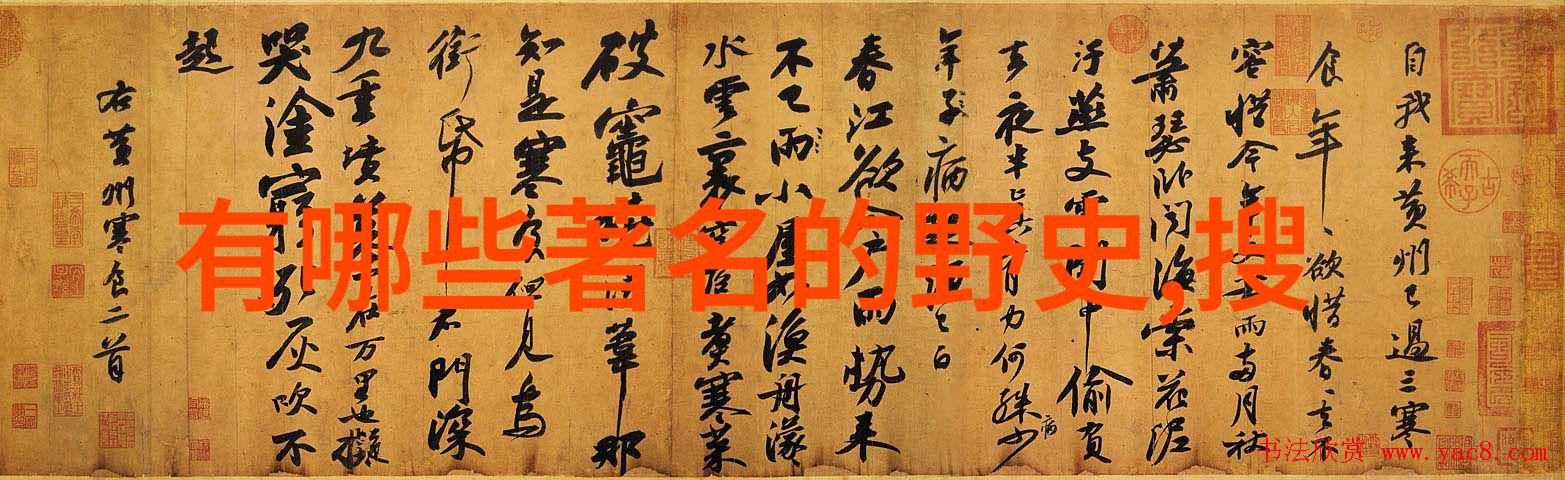 自我来黄州已過三寒
食年〻欲惜春〻去不
容惜今年又苦雨兩月秋
蕭瑟卧聞海棠花泥
汙燕支雪闇中偷負
去夜半真有力何殊少
病
年子病起頭已白
春江欲入户雨勢来
不已雨小屋如漁舟濛〻
水雲裏空庖煮寒菜
破竈燒濕葦那
知是寒食但見烏
銜帋君門深
九重墳墓在万里也擬
哭塗窮死灰吹不
起
右黄州寒食二首
有哪些著名的野史,搜
书法欣赏 www.yac8.com